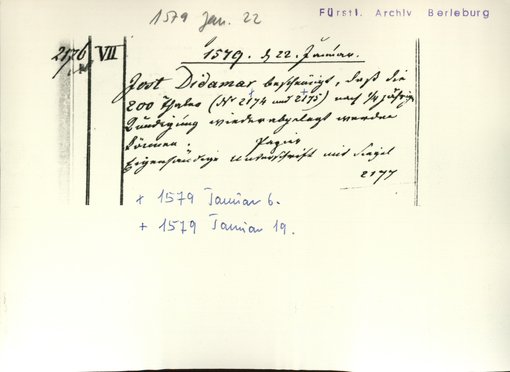 1579 Jan. 22
Fürstl. Archiv Berleburg
2176
VII
1579. d. 22. Januar.
Jost Didamar bescheinigt, daß die
200 Thaler (Nr 2174 und 2175) nach 1/4 jähriger
Kündigung wiederabgelegt werden
können. Papier
Eigenhändige Unterschrift mit Siegel
2177
+ 1579 Januar 6.
+ 1579 Januar 19.